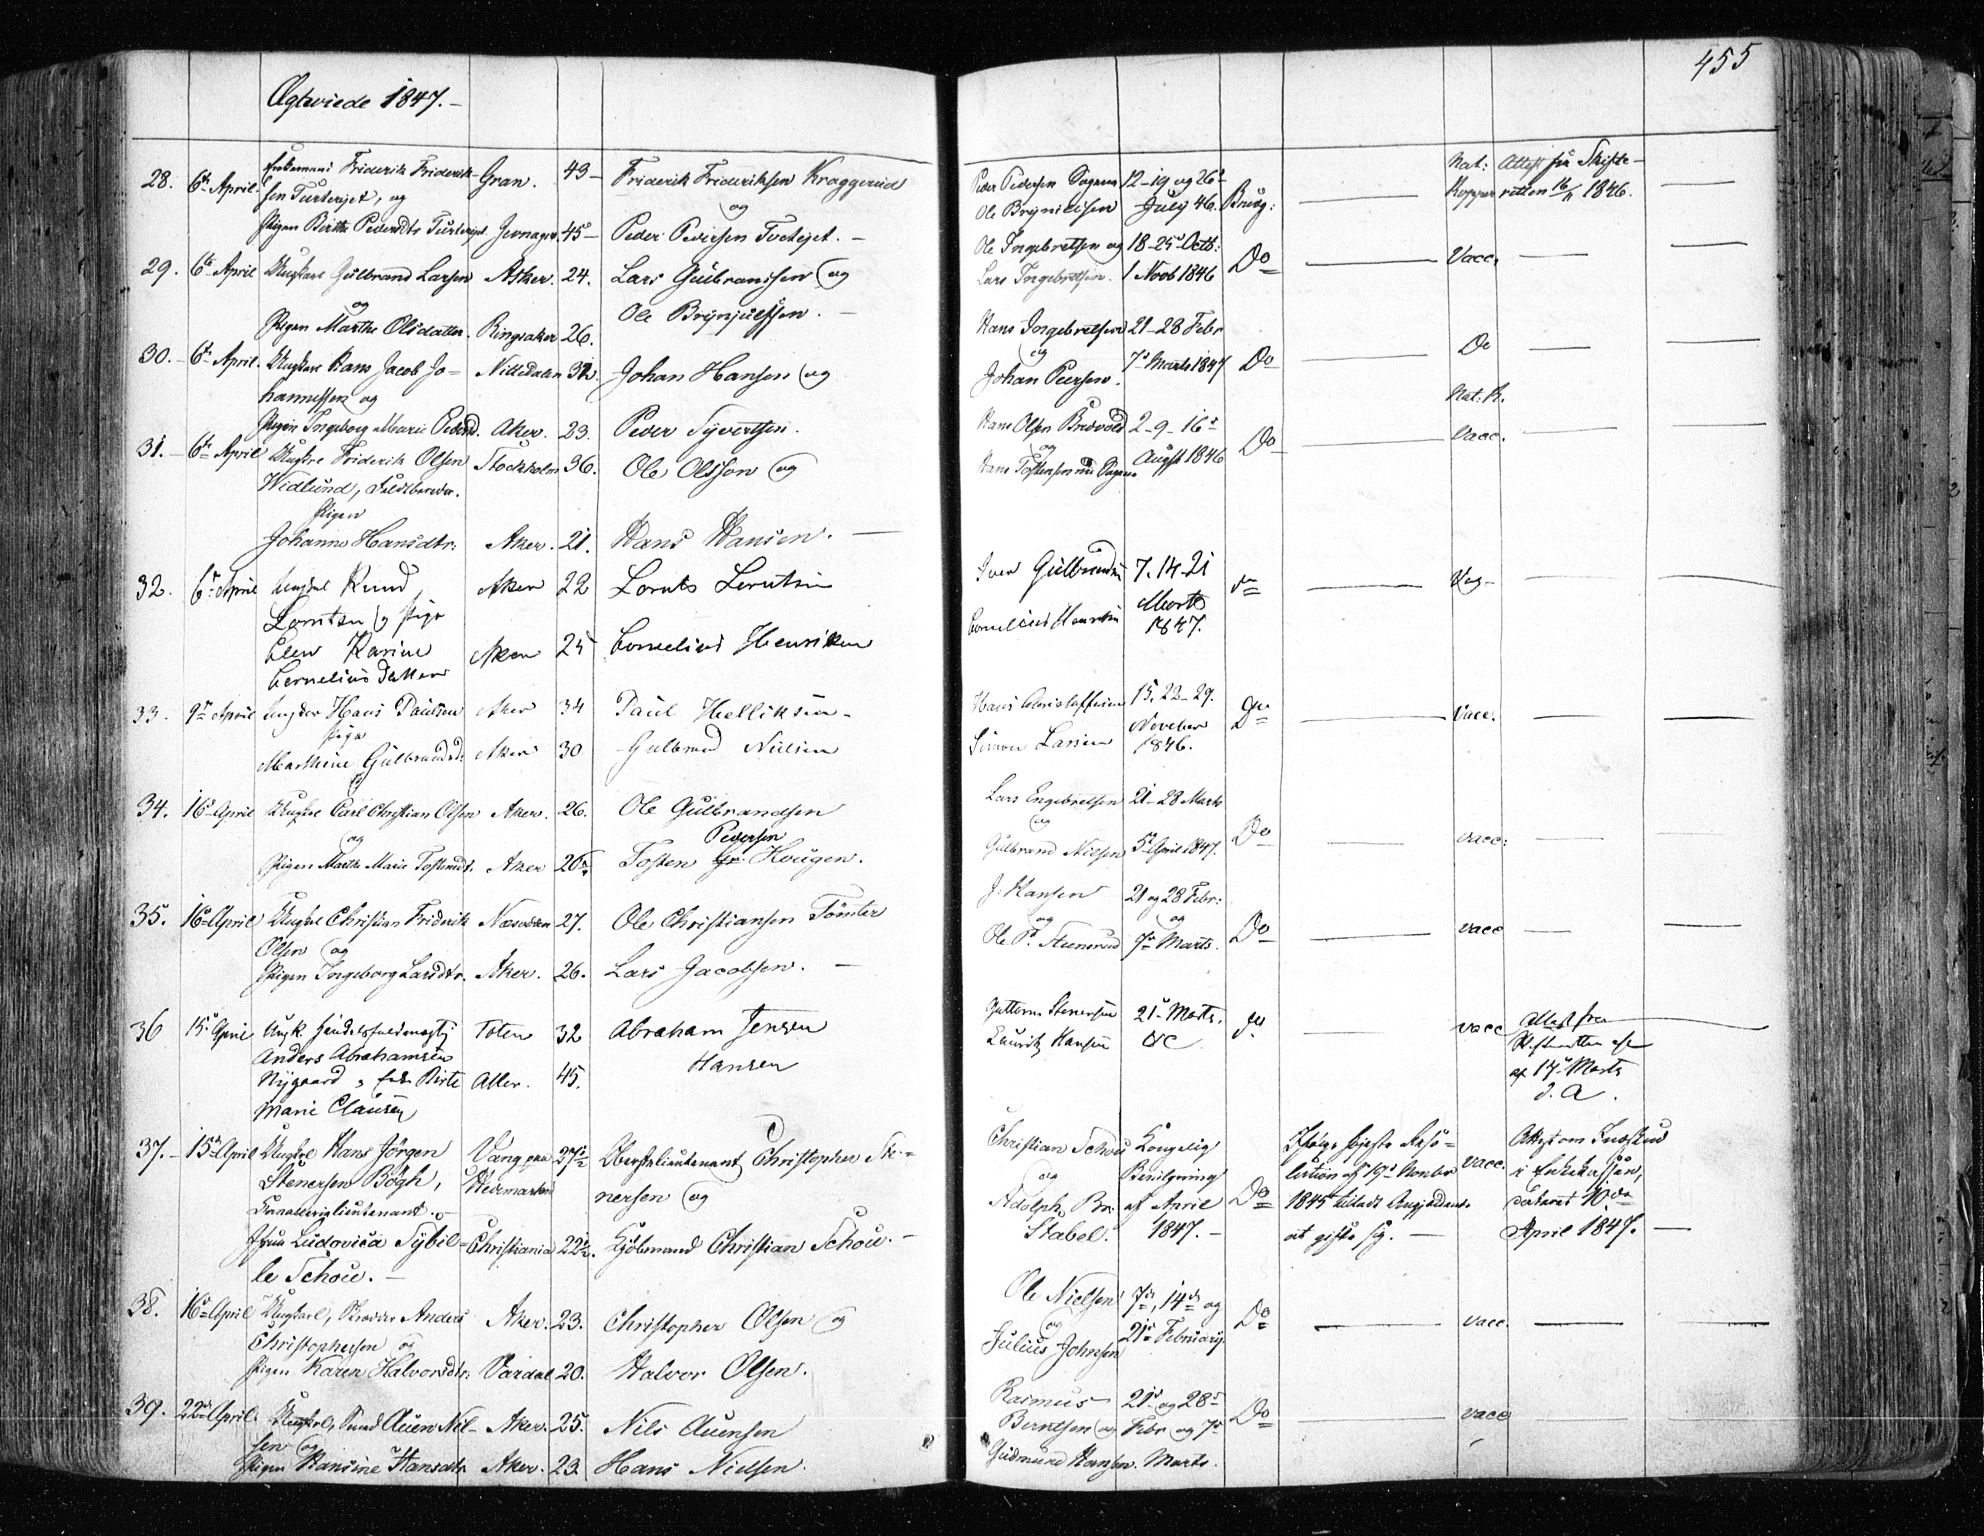 455
Ægteviede 1847.-
28. 6te April. Enkemand Friderik Friderik- Gran. 43- Friderik Frideriksen Kraggerud Peder Pedersen Sogn 12-19 og 26de Nat: Attest fra Skifte-
sen Turterejet, og og Ole Brynildsen July 46. Brug: Kopper retten 16/11 1846.
Pigen Birthe Pedersdtr Turterejet. Jevnager. 45- Peder Pedersen Tvetejet.-
29. 6te April Ungkarl Gulbrand Larsen Asker. 24. Lars Gulbransen og Ole Ingebretsen og 18-25de Octb: Do Vacc.
og Ole Brynjulfsen.- Lars Ingebretsen. 1 Novb 1846
Pigen Marthe Olsdatter. Ringsaker 26.
30.- 6te April. Ungkarl Hans Jacob Jo- Nittedalen 32. Johan Hansen og Hans Ingebretsen 21-28 Febr Do Do
hannessen og og 7de Marts 1847
Pigen Ingeborg Marie Pedersd. Aker. 23. Peder Syvertsen. Johan Peersen.
31.- 6te April Ungkarl Friderik Olsen Stockholm 36. Ole Olsson og Hans Olsen Bredvold 2-9-16de Do Nat. K.
Widlund, Feldbereder. og August 1846 Vacc.
Pigen Hans Tostensen
Johanne Hansdtr: Aker. 21. Hans Hansen.-
32. 6te April Ungkarl Knud Aker 22 Lornts Lorntsen Iver Gulbrandsen 7. 14-21 do Vac-
Lorntsen og Pige Marts
Elen Karine Aker 25 Cornelius Henriksen Cornelius Henriksen 1847.
Cornelius Datter
33. 9de April Ungkar Hans Paulsen Aker 34 Paul Helliksen- Hans Christoffersen 15. 22-29. Do Vacc.
Pige November
Marthine Gulbrandsd: Aker 30 Gulbrand Nilsen Simon Larsen 1846.
34. 16de April Ungkarl Carl Christian Olsen Aker. 26. Ole Gulbrandsen Lars Engebretsen 21-28 Marts Do vacc:
og Pedersen og
Pigen Marthe Marie Tostensdt. Aker 20 Tosten Haugen. Gulbrand Nilsen 5te April 1847.
35. 16de April Ungkarl Christian Friderik Næsodden 27. Ole Christiansen Tömter J: Hansen 21 og 28 Febr: Do vacc
Olsen og og og
Pigen Ingeborg Larsdtr. Aker. 26. Lars Jacobsen.- Ole P. Steensrud 7de Marts.
36 15de April Ungk. Handelsfuldmægtig Toten 32 Abraham Jensen Guttorm Stenersen 21de Marts. do vacc Attest fra
Anders Abrahamsen Lauritz Hansen &c Skifteretten
Nygaard og Enke Birte Aker. 45. Hansen af 17de Marts
Marie Clausen d. A.
37.- 15de April Ungkarl Hans Jörgen Vang paa 27½ Oberstlieutenant Christopher Ste- Christian Schou Kongelig Ifølge høieste Reso- vacc. Attest om Indskud
Stenersen Bögh, Hedemarken nersen og og Bevilgning lution af 19de Novbr i Enkekassen,
Premierlieutenant og Adolph Br: af April Do 1845 tilladt Angjeldende dateret
Jfru Ludovica Sybil- Christiania 22½. Kjöbmand Christian Schou.- Stabel. 1847.- at gifte sig.- April 1847.-
le Schou.-
38. 16de April Ungkarl, Skredder Anders Aker. 23. Christopher Olsen og Ole Nielsen 7de, 14de og Do vacc.
Christophersen og og 21de February
Pigen Karen Halvorsdtr: Vardal 20. Halvor Olsen. Julius Johnsen
39. 22de April. Ungkarl, Smed Auen Nil- Aker. 25. Nils Auensen Rasmus 21de og 28de Do vacc
sen og Berntsen og Febr og 7de
Pigen Hansine Hansdtr Aker. 23. Hans Nielsen. Gudmund Hansen. Marts.